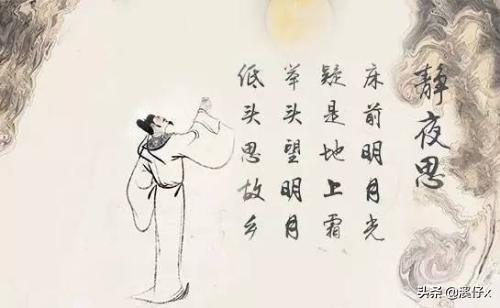 静夜思
床前明月光
疑是地上霜
举头望明月
低头思故乡
头条 @溪仔x